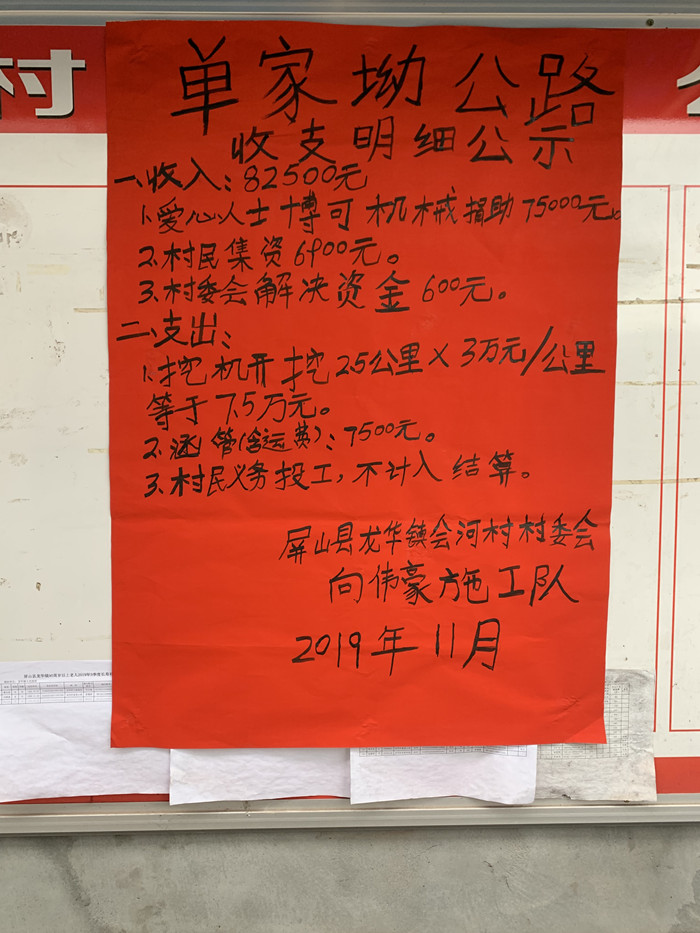 村
单家坳公路
收支明细公示
一、收入：82500元
1.爱心人士博可机械捐助75000元。
2.村民集资6900元。
3.村委会解决资金600元。
二、支出：
1.挖机开挖2.5公里×3万元/公里
等于7.5万元。
2.涵管(含运费)：7500元。
3.村民义务投工，不计入结算。
屏山县龙华镇会河村村委会
向伟豪施工队
2019年11月